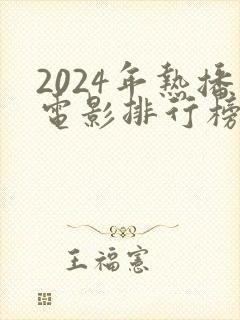 2024年熱播
電影排行榜
王福憲